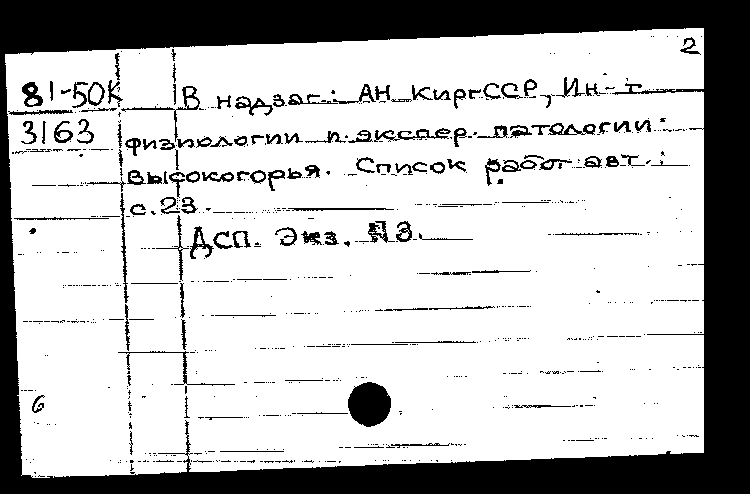 2
81-50К В надзаг.: АН КиргССР, Ин-т
3163 физиологии и экспер. патологии
высокогорья. Список работ авт.:
с.23.
ДСП. Экз. №3.
6